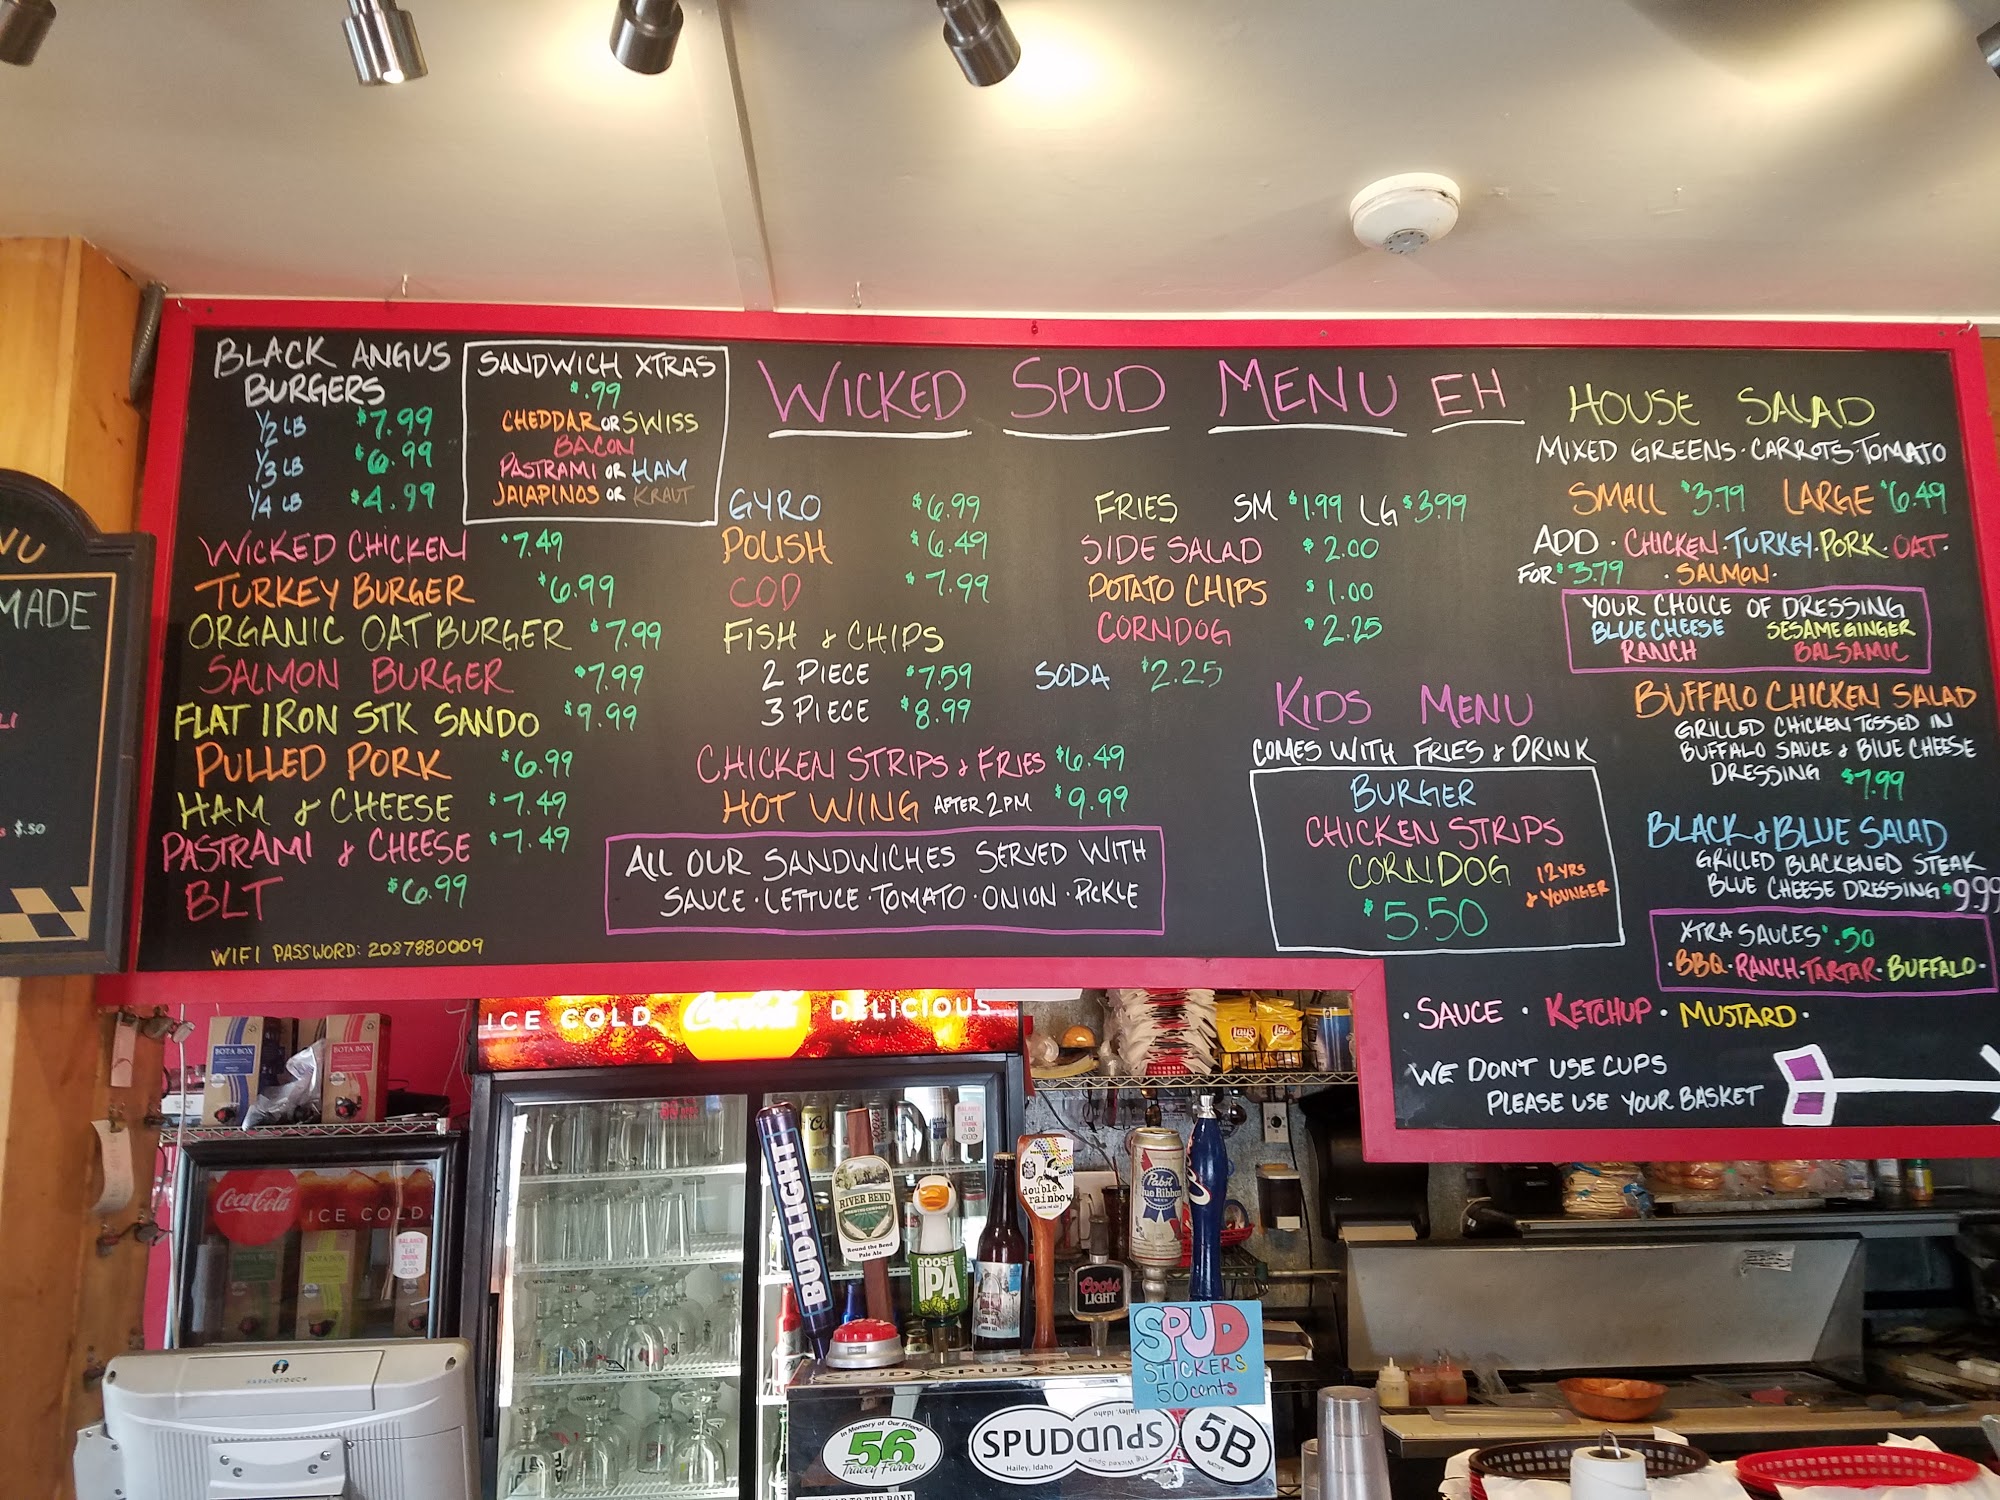 BLACK ANGUS
BURGERS
1/2 LB $7.99
1/3 LB $6.99
1/4 LB $4.99
WICKED CHICKEN $7.49
TURKEY BURGER $6.99
ORGANIC OAT BURGER $7.99
SALMON BURGER $7.99
FLAT IRON STK SANDO $9.99
PULLED PORK $6.99
HAM & CHEESE $7.49
PASTRAMI & CHEESE $7.49
BLT $6.99
WIFI PASSWORD: 2087880009
SANDWICH XTRAS
$.99
CHEDDAR OR SWISS
BACON
PASTRAMI OR HAM
JALAPINOS OR KRAUT
WICKED SPUD MENU EH
GYRO $6.99
POLISH $6.49
COD $7.99
FISH & CHIPS
2 PIECE $7.59
3 PIECE $8.99
CHICKEN STRIPS & FRIES $6.49
HOT WING AFTER 2PM $9.99
ALL OUR SANDWICHES SERVED WITH
SAUCE · LETTUCE · TOMATO · ONION · PICKLE
FRIES SM $1.99 LG $3.99
SIDE SALAD $2.00
POTATO CHIPS $1.00
CORNDOG $2.25
SODA $2.25
KIDS MENU
COMES WITH FRIES & DRINK
BURGER
CHICKEN STRIPS
CORNDOG
12 YRS
& YOUNGER
$5.50
HOUSE SALAD
MIXED GREENS · CARROTS · TOMATO
SMALL $3.79 LARGE $6.49
ADD · CHICKEN · TURKEY · PORK · OAT ·
FOR $3.79 · SALMON ·
YOUR CHOICE OF DRESSING
BLUE CHEESE SESAME GINGER
RANCH BALSAMIC
BUFFALO CHICKEN SALAD
GRILLED CHICKEN TOSSED IN
BUFFALO SAUCE & BLUE CHEESE
DRESSING $7.99
BLACK & BLUE SALAD
GRILLED BLACKENED STEAK
BLUE CHEESE DRESSING $9.99
XTRA SAUCES $.50
· BBQ · RANCH · TARTAR · BUFFALO ·
· SAUCE · KETCHUP · MUSTARD ·
WE DON'T USE CUPS
PLEASE USE YOUR BASKET
MADE
$.50
ICE COLD Coca-Cola DELICIOUS
BOTA BOX
BOTA BOX
Lays
Coca-Cola ICE COLD
BUD LIGHT
RIVER BEND
Round the Bend
Pale Ale
GOOSE
IPA
double
rainbow
Coors
LIGHT
Pabst
Blue Ribbon
SPUD
STICKERS
50 cents
In Memory of Our Friend
56
Tracey Farrow
SPUDandS
Hailey, Idaho
The Wicked Spud
Hailey, Idaho
5B
NATIVE
HARBORTOUCH